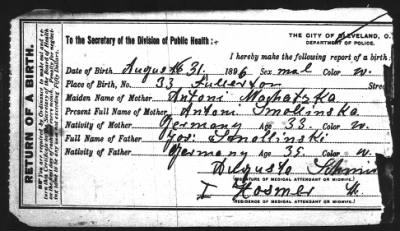 THE CITY OF CLEVELAND, O.
DEPARTMENT OF POLICE.
To the Secretary of the Division of Public Health:
I hereby make the following report of a birth:
Date of Birth August 31. 1896 Sex mal Color w.
Place of Birth, No. 33 Fullerton Stre
Maiden Name of Mother Antoni Machatzka
Present Full Name of Mother Antoni Smolinska
Nativity of Mother Germany Age 33. Color w.
Full Name of Father Jos. Smollinski
Nativity of Father Germany Age 35. Color w.
Augusto
(SIGNATURE OF MEDICAL ATTENDANT OR MIDWIFE.)
Hosmer
(RESIDENCE OF MEDICAL ATTENDANT OR MIDWIFE)
RETURN OF A BIRTH.